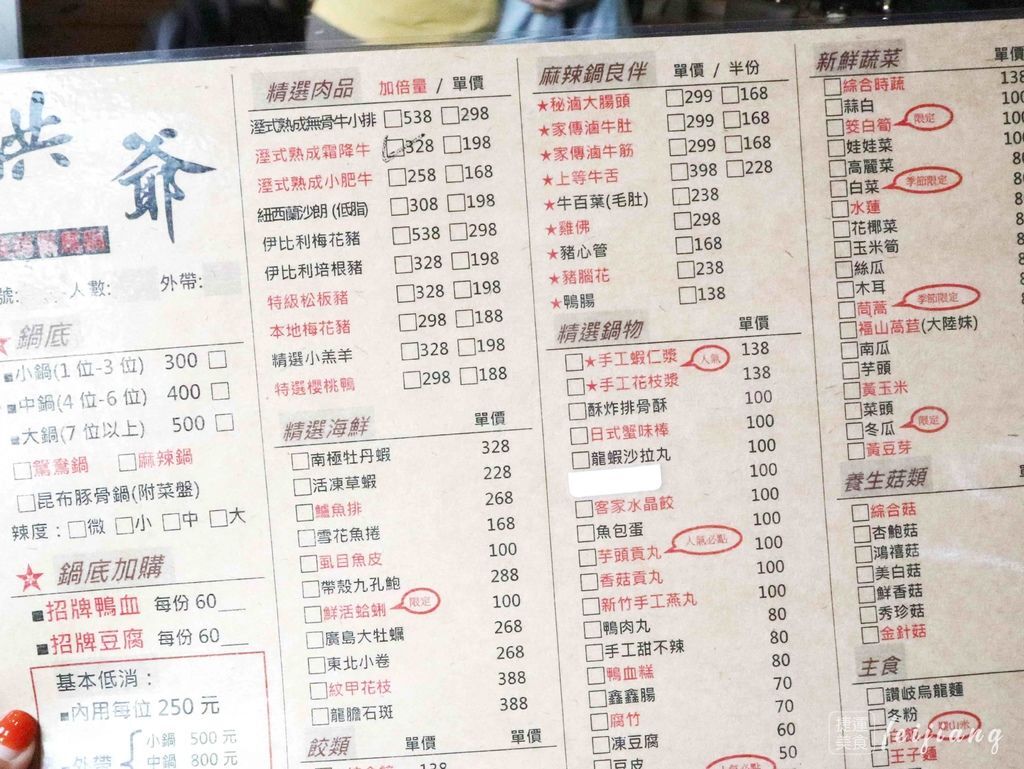 洪爺
號: 人數: 外帶:
鍋底
小鍋(1 位-3 位) 300
中鍋(4 位-6 位) 400
大鍋(7 位以上) 500
鴛鴦鍋 麻辣鍋
昆布豚骨鍋(附菜盤)
辣度：微 小 中 大
鍋底加購
招牌鴨血 每份 60
招牌豆腐 每份 60
基本低消：
內用每位 250 元
外帶
小鍋 500 元
中鍋 800 元
精選肉品 加倍量 / 單價
溼式熟成無骨牛小排 538 298
溼式熟成霜降牛 328 198
溼式熟成小肥牛 258 168
紐西蘭沙朗 (低脂) 308 198
伊比利梅花豬 538 298
伊比利培根豬 328 198
特級松板豬 328 198
本地梅花豬 298 188
精選小羔羊 328 198
特選櫻桃鴨 298 188
精選海鮮 單價
南極牡丹蝦 328
活凍草蝦 228
鱸魚排 268
雪花魚捲 168
虱目魚皮 100
帶殼九孔鮑 288
鮮活蛤蜊 限定 100
廣島大牡蠣 268
東北小卷 268
紋甲花枝 388
龍膽石斑 388
餃類 單價 單價
138
麻辣鍋良伴 單價 / 半份
★秘滷大腸頭 299 168
★家傳滷牛肚 299 168
★家傳滷牛筋 299 168
★上等牛舌 398 228
★牛百葉(毛肚) 238
★雞佛 298
★豬心管 168
★豬腦花 238
★鴨腸 138
精選鍋物 單價
★手工蝦仁漿 人氣 138
★手工花枝漿 138
酥炸排骨酥 100
日式蟹味棒 100
龍蝦沙拉丸 100
100
客家水晶餃 100
魚包蛋 100
芋頭貢丸 人氣必點 100
香菇貢丸 100
新竹手工燕丸 100
鴨肉丸 80
手工甜不辣 80
鴨血糕 80
鑫鑫腸 70
腐竹 70
凍豆腐 60
豆皮 50
人氣必點
新鮮蔬菜 單價
綜合時蔬 138
蒜白 100
筊白筍 限定 100
娃娃菜 100
高麗菜
白菜 季節限定
水蓮
花椰菜
玉米筍
絲瓜
木耳
茼蒿 季節限定
福山萵苣(大陸妹)
南瓜
芋頭
黃玉米
菜頭
冬瓜 限定
黃豆芽
養生菇類
綜合菇
杏鮑菇
鴻禧菇
美白菇
鮮香菇
秀珍菇
金針菇
主食
讚岐烏龍麵
冬粉
王子麵
捷運美食 feijiang